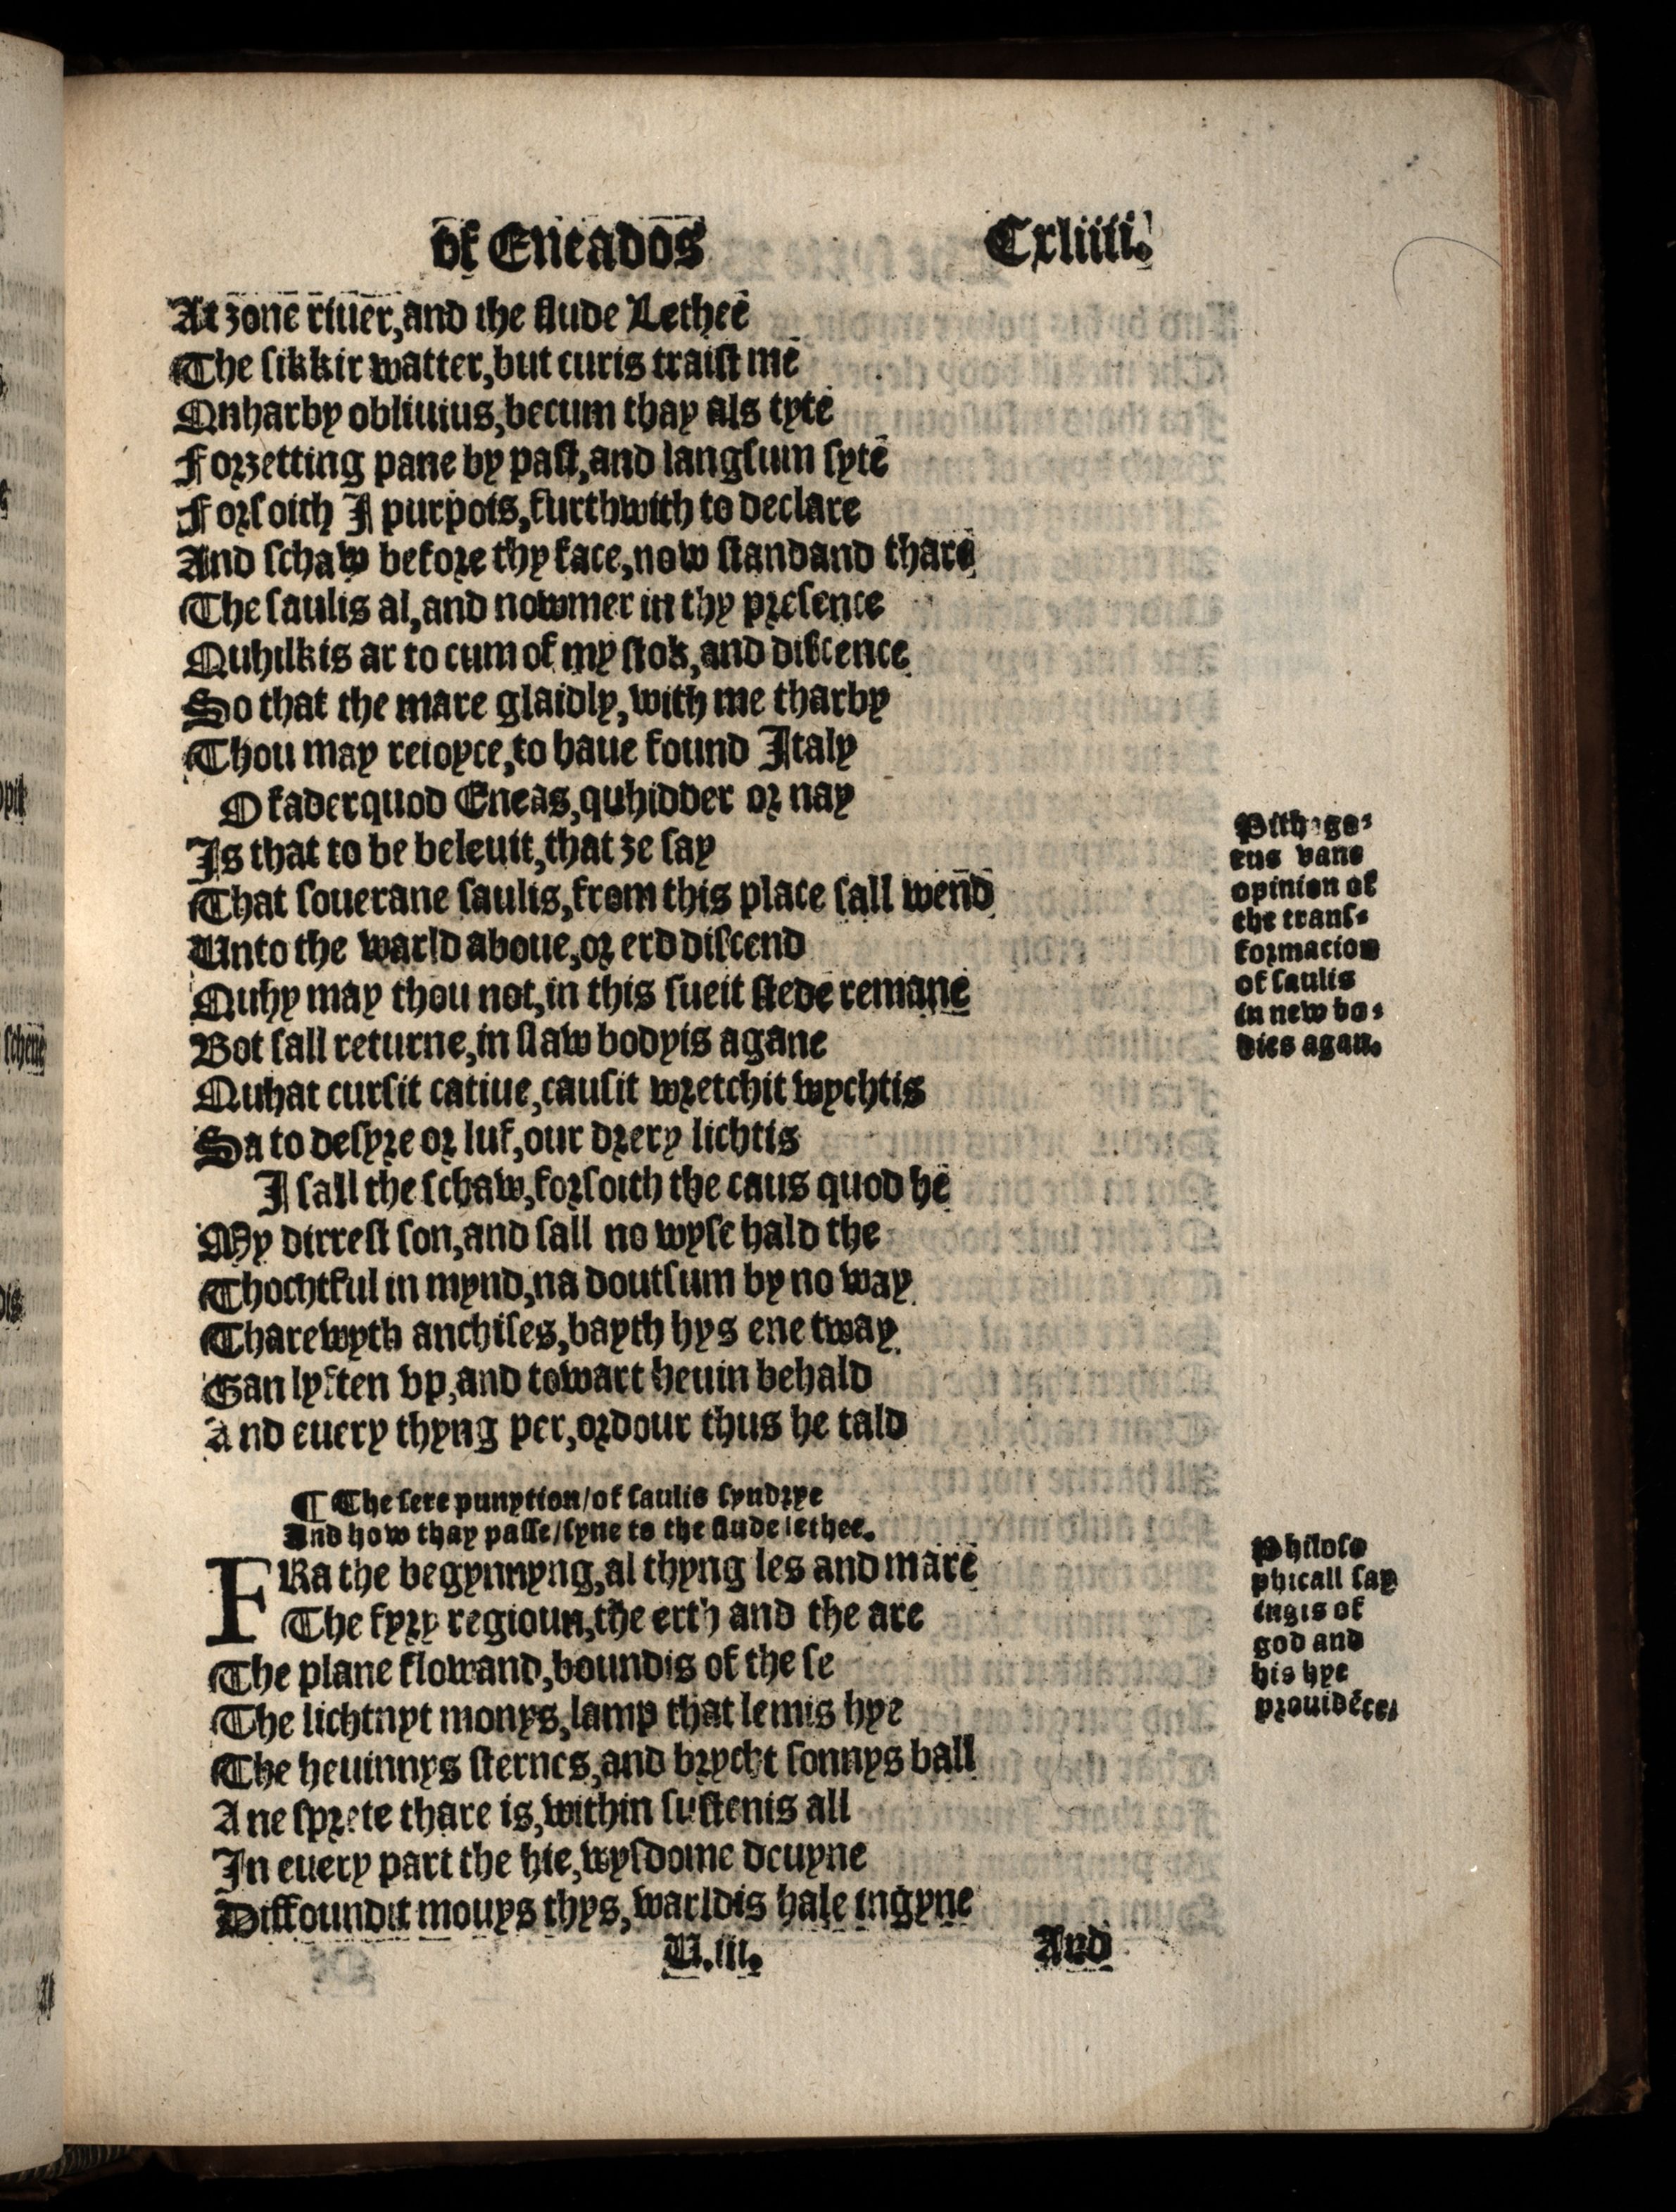 of Eneados
Cxliiii.
At ȝone riuer,and the flude Lethee
The sikkir watter,but curis traist me
Onharby obliuius,becum thay als tyte
Forȝetting pane by past,and langsum syte
Forsoith I purpois,furthwith to declare
And schaw before thy face,now standand thare
The saulis al,and nowmer in thy presence
Quhilkis ar to cum of my stok,and discence
So that the mare glaidly,with me tharby
Thou may reioyce,to haue found Italy
O fader quod Eneas,quhidder or nay
Is that to be beleuit,that ȝe say
That souerane saulis,from this place sall wend
Unto the warld aboue,or erd discend
Quhy may thou not,in this sueit stede remane
Bot sall returne,in slaw bodyis agane
Quhat cursit catiue,causit wretchit wychtis
Sa to desyre or luf,our drery lichtis
I sall the schaw,forsoith the caus quod he
My dirrest son,and sall no wyse hald the
Thochtful in mynd,na doutsum by no way
Tharewyth anchises,bayth hys ene tway
Gan lyften vp,and towart heuin behald
And euery thyng per,ordour thus he tald
Pithago-
eus vane
opinion of
the trans-
formacion
of saulis
in new bo-
dies agan.
¶ The sere punytion/of saulis syndrye
And how thay passe/syne to the flude lethee.
FRa the begynnyng,al thyng les and mare
The fyry regioun,the erth and the are
The plane flowand,boundis of the se
The lichtnyt monys,lamp that lemis hye
The heuinnys sternes,and brycht sonnys ball
Ane sprete thare is,within sustenis all
In euery part the hie,wysdome deuyne
Diffoundit mouys thys,warldis hale ingyne
Philoso
phicall say
ingis of
god and
his hye
prouidēce,
U.iii.
And